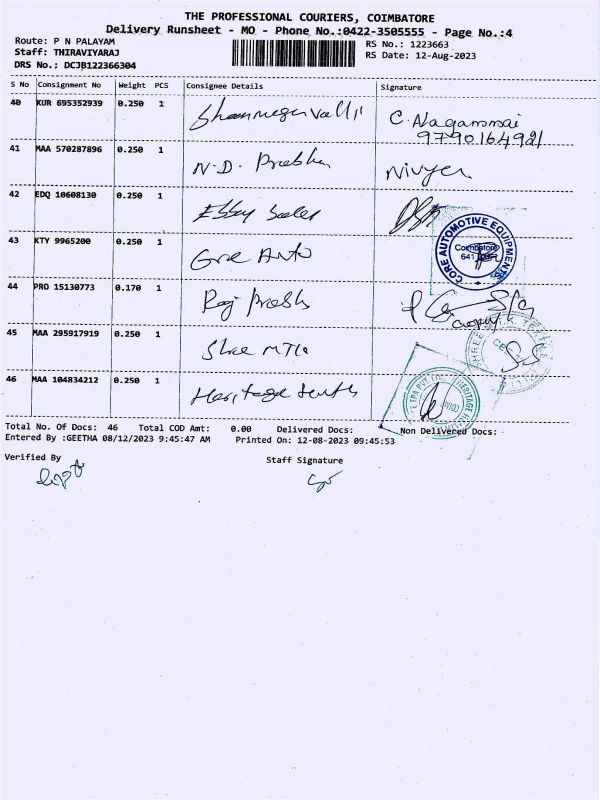 THE PROFESSIONAL COURIERS, COIMBATORE
Delivery Runsheet - MO - Phone No.:0422-3505555 - Page No.:4
Route: P N PALAYAM
RS No.: 1223663
Staff: THIRAVIYARAJ
RS Date: 12-Aug-2023
DRS No.: DCJB122366304
S No Consignment No Weight PCS Consignee Details Signature
40 KUR 695352939 0.250 1 Shanmugavalli C. Nagammai
9790164921
41 MAA 570287896 0.250 1 N.D. Prabhu
42 EDQ 10608130 0.250 1
43 KTY 9965200 0.250 1 Auto
CORE AUTOMOTIVE EQUIPMENTS
Coimbatore
641
44 PRO 15130773 0.170 1
45 MAA 295917919 0.250 1 Shree MTC
46 MAA 104834212 0.250 1 Heritage
Total No. Of Docs: 46 Total COD Amt: 0.00 Delivered Docs: Non Delivered Docs:
Entered By :GEETHA 08/12/2023 9:45:47 AM Printed On: 12-08-2023 09:45:53
Verified By Staff Signature